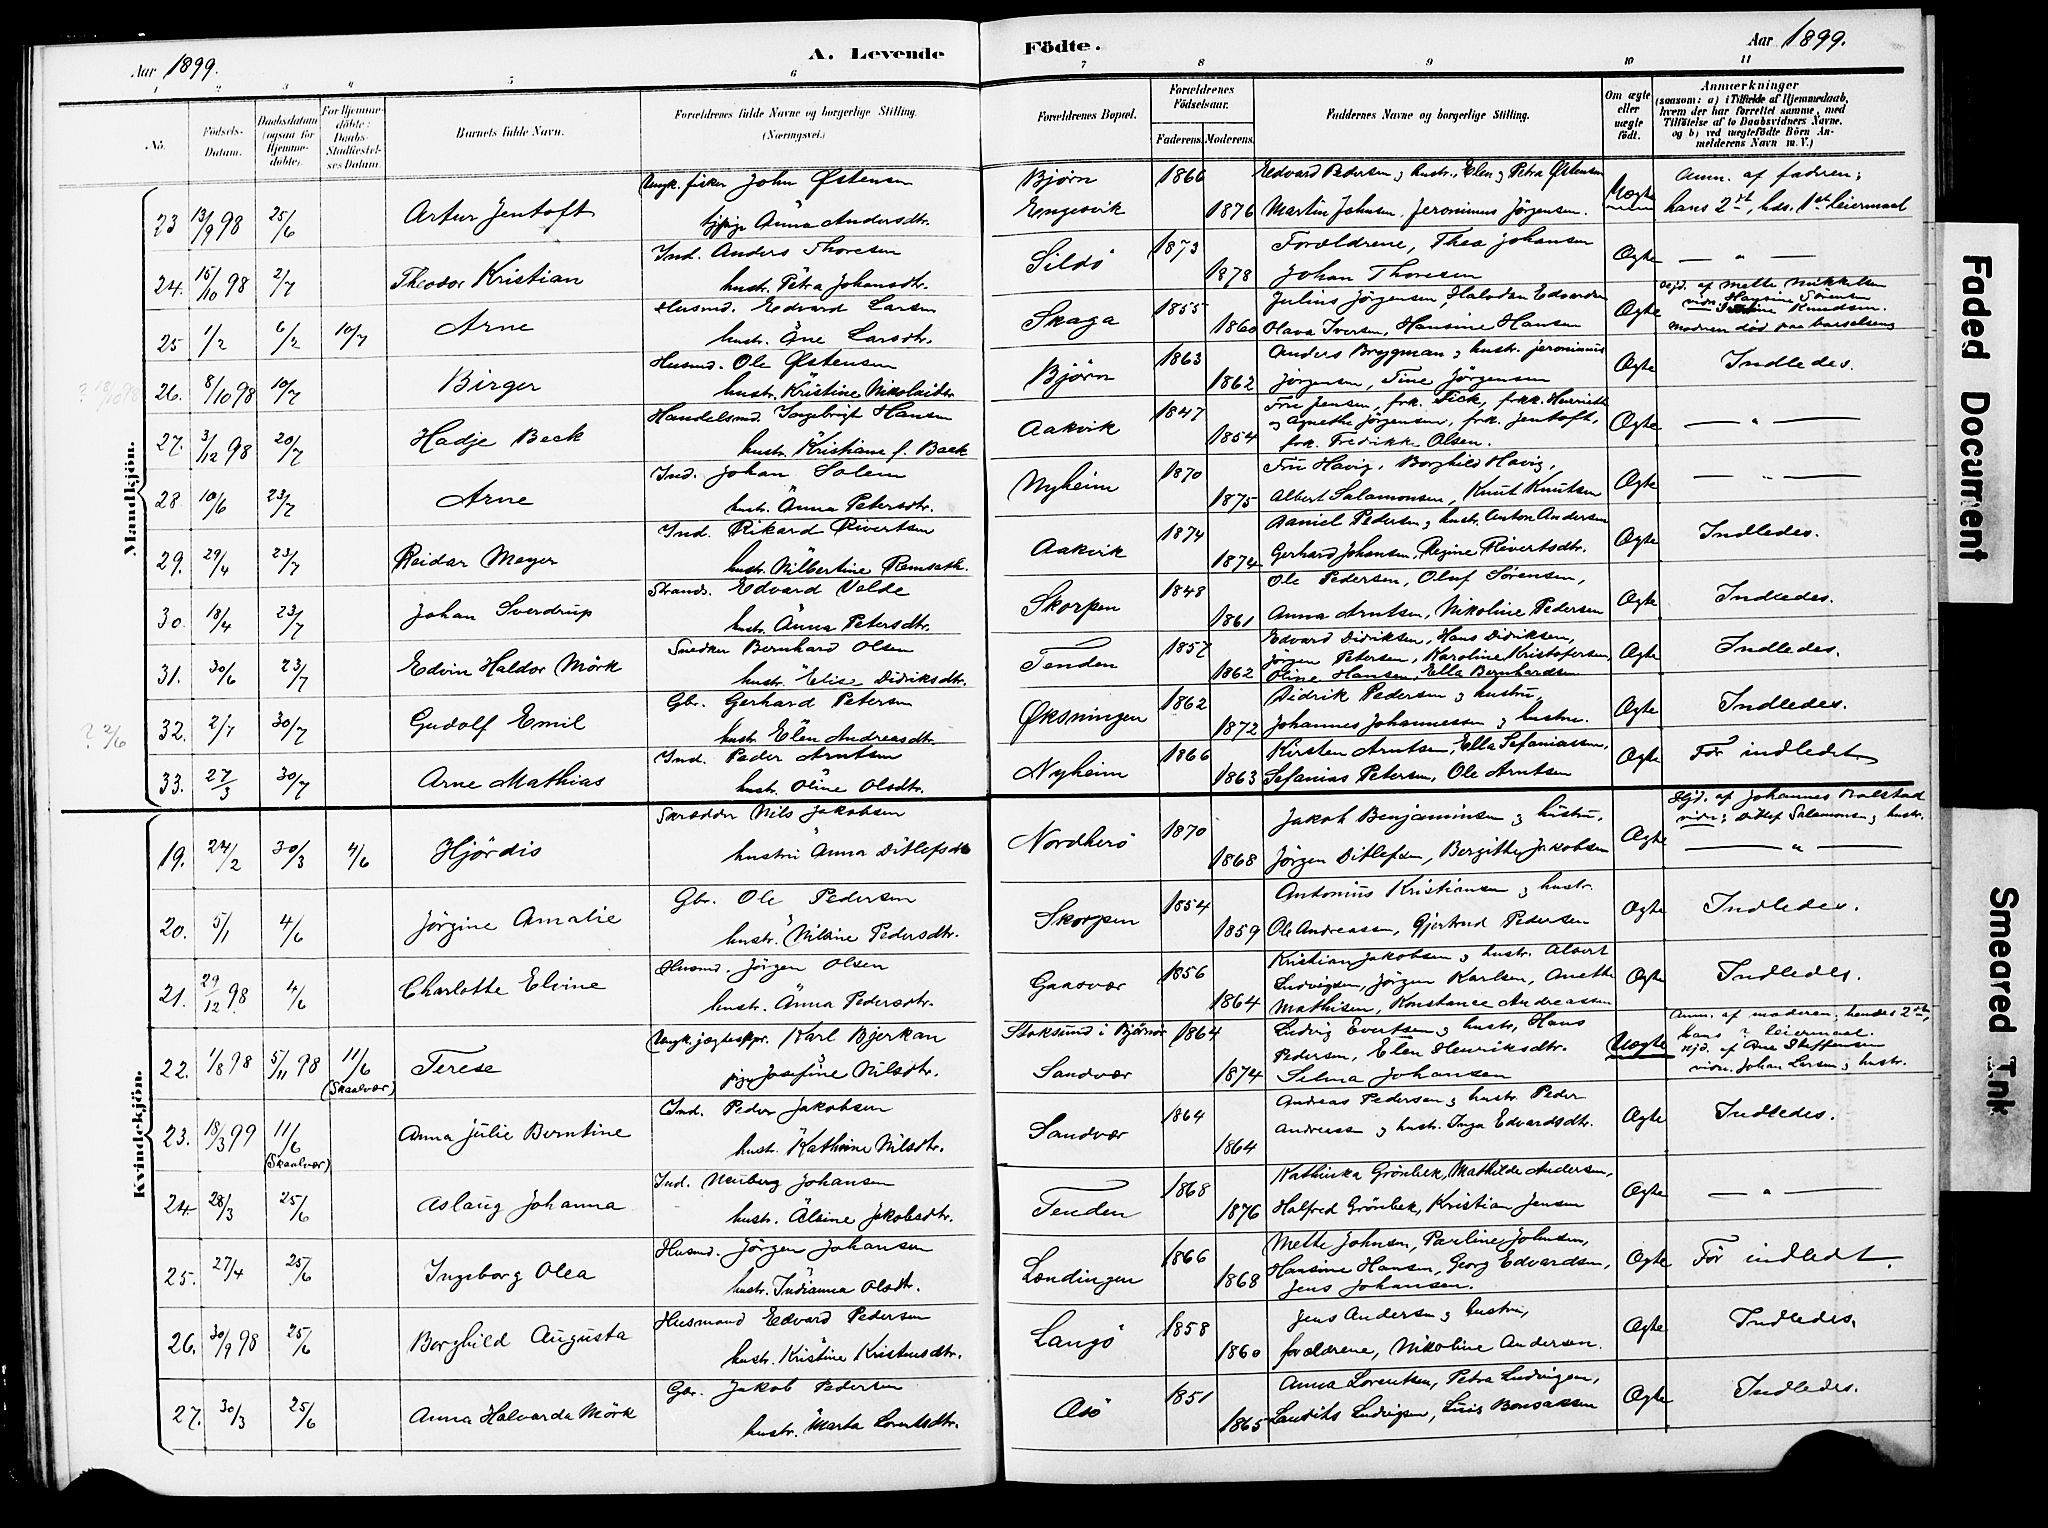 Aar 1899.
A. Levende Födte.
Aar 1899.
1 2 3 4 5 6 7 8 9 10 11
No.
Födsels-Datum.
Daabsdatum (ogsaa for Hjemmedöbte).
For Hjemmedöbte: Daabs Stadfæstelses Datum
Barnets fulde Navn.
Forældrenes fulde Navne og borgerlige Stilling. (Næringsvei.)
Forældrenes Bopæl.
Forældrenes Födselsaar.
Faderens. Moderens.
Faddernes Navne og borgerlige Stilling.
Om ægte eller uægte födt.
Anmærkninger
(saasom: a) i Tilfælde af Hjemmedaab, hvem der har forrettet samme, med Tilföielse af to Daabsvidners Navne, og b) ved uægtefödte Börn Anmelderens Navn m. V.)
Mandkjön.
23 13/9 98 25/6 Artur Jentoft
Ungk. fisker John Østensen
pige Anna Andersdtr.
Bjørn
Engesvik
1866 1876
Edvard Pedersen og hustr., Elen og Petra Østensen
Martin Johnsen, Jeronimus Jörgensen.
Uægte
Anm. af faderen;
hans 2det, hds. 1ste leiermaal
24. 15/10 98 2/7 Theodor Kristian
Ind. Anders Thoresen
hustr. Petra Johansdtr.
Sildö
1873 1878
Forældrene, Thea Johansen
Johan Thoresen
Ægte
— " —
25 1/2 6/2 10/7 Arne
Husmd. Edvard Larsen
hustr. Ane Larsdtr.
Skaga
1855 1860
Julius Jörgensen, Halvdan Edvardsen
Olava Iversen, Hansine Hansen
Ægte
Hjd. af Mette Mikkelsen
vidn. Hansine Sörensen
Knudsen.
Moderen död paa barselseng
? 18/10 98
26. 8/10 98 10/7 Birger
Husmd. Ole Østensen
hustr. Kristine Nikolaidtr.
Bjørn
1863 1862
Anders Brygman og hustr. Jeronimus
Jörgensen, Tine Jörgensen
Ægte
Indledes.
27. 3/12 98 20/7 Hadje Beck
Handelsmd. Ingebrigt Hansen
hustr. Kristiane f. Beck
Aakvik
1847 1854
Fru Jensen, frk. Fick, frkk. Henriette
og Agnethe Jörgensen, frk. Jentoft,
frk. Fredrikke Olsen.
Ægte
— " —
28. 10/6 23/7 Arne
Ind. Johan Solem
hustr. Anna Petersdtr.
Nyheim
1870 1875
Fru Havig, Borghild Havig,
Albert Salamonsen, Knut Knutsen
Ægte
— " —
29. 29/4 23/7 Reidar Meyer
Ind. Rikard Rivertsen
hustr. Nilbertine Ramsæth.
Aakvik
1874 1874
Daniel Pedersen og hustr. Anton Andersen
Gerhard Johansen, Regine Rivertsdtr.
Ægte
Indledes.
30. 18/4 23/7 Johan Sverdrup
Strands. Edvard Velde
hustr. Anna Petersdtr.
Skorpen
1848 1861
Ole Pedersen, Oluf Sörensen,
Anna Arntsen, Nikoline Pedersen
Ægte
Indledes.
31. 30/6 23/7 Edvin Haldor Mörk
Snedker Bernhard Olsen
hustr. Elise Didriksdtr.
Tenden
1857 1862
Edvard Didriksen, Hans Didriksen,
Jörgen Petersen, Karoline Kristofersen
Oline Hansen, Ella Bernhardsen
Ægte
Indledes.
? 2/6
32. 2/7 30/7 Gudolf Emil
Gbr. Gerhard Petersen
hustr. Elen Andreasdtr.
Øksningen
1862 1872
Didrik Pedersen og hustru,
Johannes Johannessen og hustru.
Ægte
Indledes.
33. 27/3 30/7 Arne Mathias
Ind. Peder Arntsen
hustr. Oline Olsdtr.
Nyheim
1866 1863
Kirsten Arntsen, Ella Sefaniassen,
Sefanias Petersen, Ole Arntsen
Ægte
Før indledet
Kvindekjön.
19. 24/2 30/3 4/6 Hjördis
Skrædder Nils Jakobsen
hustru Anna Ditlefsdtr
Nordherö
1870 1868
Jakob Benjaminsen og hustru.
Jörgen Ditlefsen, Bergitte Jakobsen
Ægte
Hjd. af Johannes Rolstad
vidn; Ditlef Salamonsen og hustr.
— " —
20. 5/1 4/6 Jörgine Amalie
Gbr. Ole Pedersen
hustr. Nilsine Pedersdtr.
Skorpen
1854 1859
Antonius Kristiansen og hustr.
Ole Andreassen, Gjertrud Pedersen
Ægte
Indledes.
21. 29/12 98. 4/6 Charlotte Elvine
Husmd. Jörgen Olsen
hustr. Anna Pedersdtr.
Gaasvær
1856 1864
Kristian Jakobsen og hustr. Albert
Ludvigsen, Jörgen Karlsen, Anette
Mathisen, Konstance Andreassen
Ægte
Indledes.
22. 1/8 98 5/11 98 11/6 (Skaalvær) Terese
Ungk. jægteskpr. Karl Bjerkan
pige Josefine Nilsdtr.
Stoksund i Bjørnør
Sandvær
1864 1874
Ludvig Evertsen og hustr, Hans
Pedersen, Elen Henriksdtr.
Selma Johansen
Uægte
Anm. af moderen; hendes 2det,
hans ? leiermaal.
Hjd. af Ane Steffensen
vidn. Johan Larsen og hustr.
23. 18/3 99 11/6 (Skaalvær) Anna Julie Berntine
Ind. Peder Jakobsen
hustr. Kathrine Nilsdtr.
Sandvær
1864 1864
Andreas Pedersen og hustr. Peder
Andreassen og hustr. Inga Edvardsdtr.
Ægte
Indledes.
24 28/3 25/6 Aslaug Johanna
Ind. Neuberg Johansen
hustr. Alsine Jakobsdtr.
Tenden
1868 1876
Kathinka Grönbek, Mathilde Andersen,
Halfred Grönbek, Kristian Jensen
Ægte
— " —
25. 27/4 25/6 Ingeborg Olea
Husmd. Jörgen Johansen
hustr. Indianna Olsdtr.
Lændingen
1866 1868
Mette Johnsen, Pauline Johnsen,
Hansine Hansen, Georg Edvardsen,
Jens Johansen.
Ægte
Før indledt.
26. 30/9 98 25/6 Borghild Augusta
Husmand Edvard Pedersen
hustr. Kristine Kristensdtr.
Langö
1858 1860
Jens Andersen og hustru,
forældrene, Nikoline Andersen.
Ægte
Indledes.
27. 30/3 25/6 Anna Halvarda Mörk
Gbr. Jakob Pedersen
hustr. Marta Lorntsdtr.
Asö
1851 1865
Anna Lorentsen, Petra Ludvigsen,
Lauritz Ludvigsen, Bonsaksen
Ægte
Indledes.
Faded Document
Smeared Ink